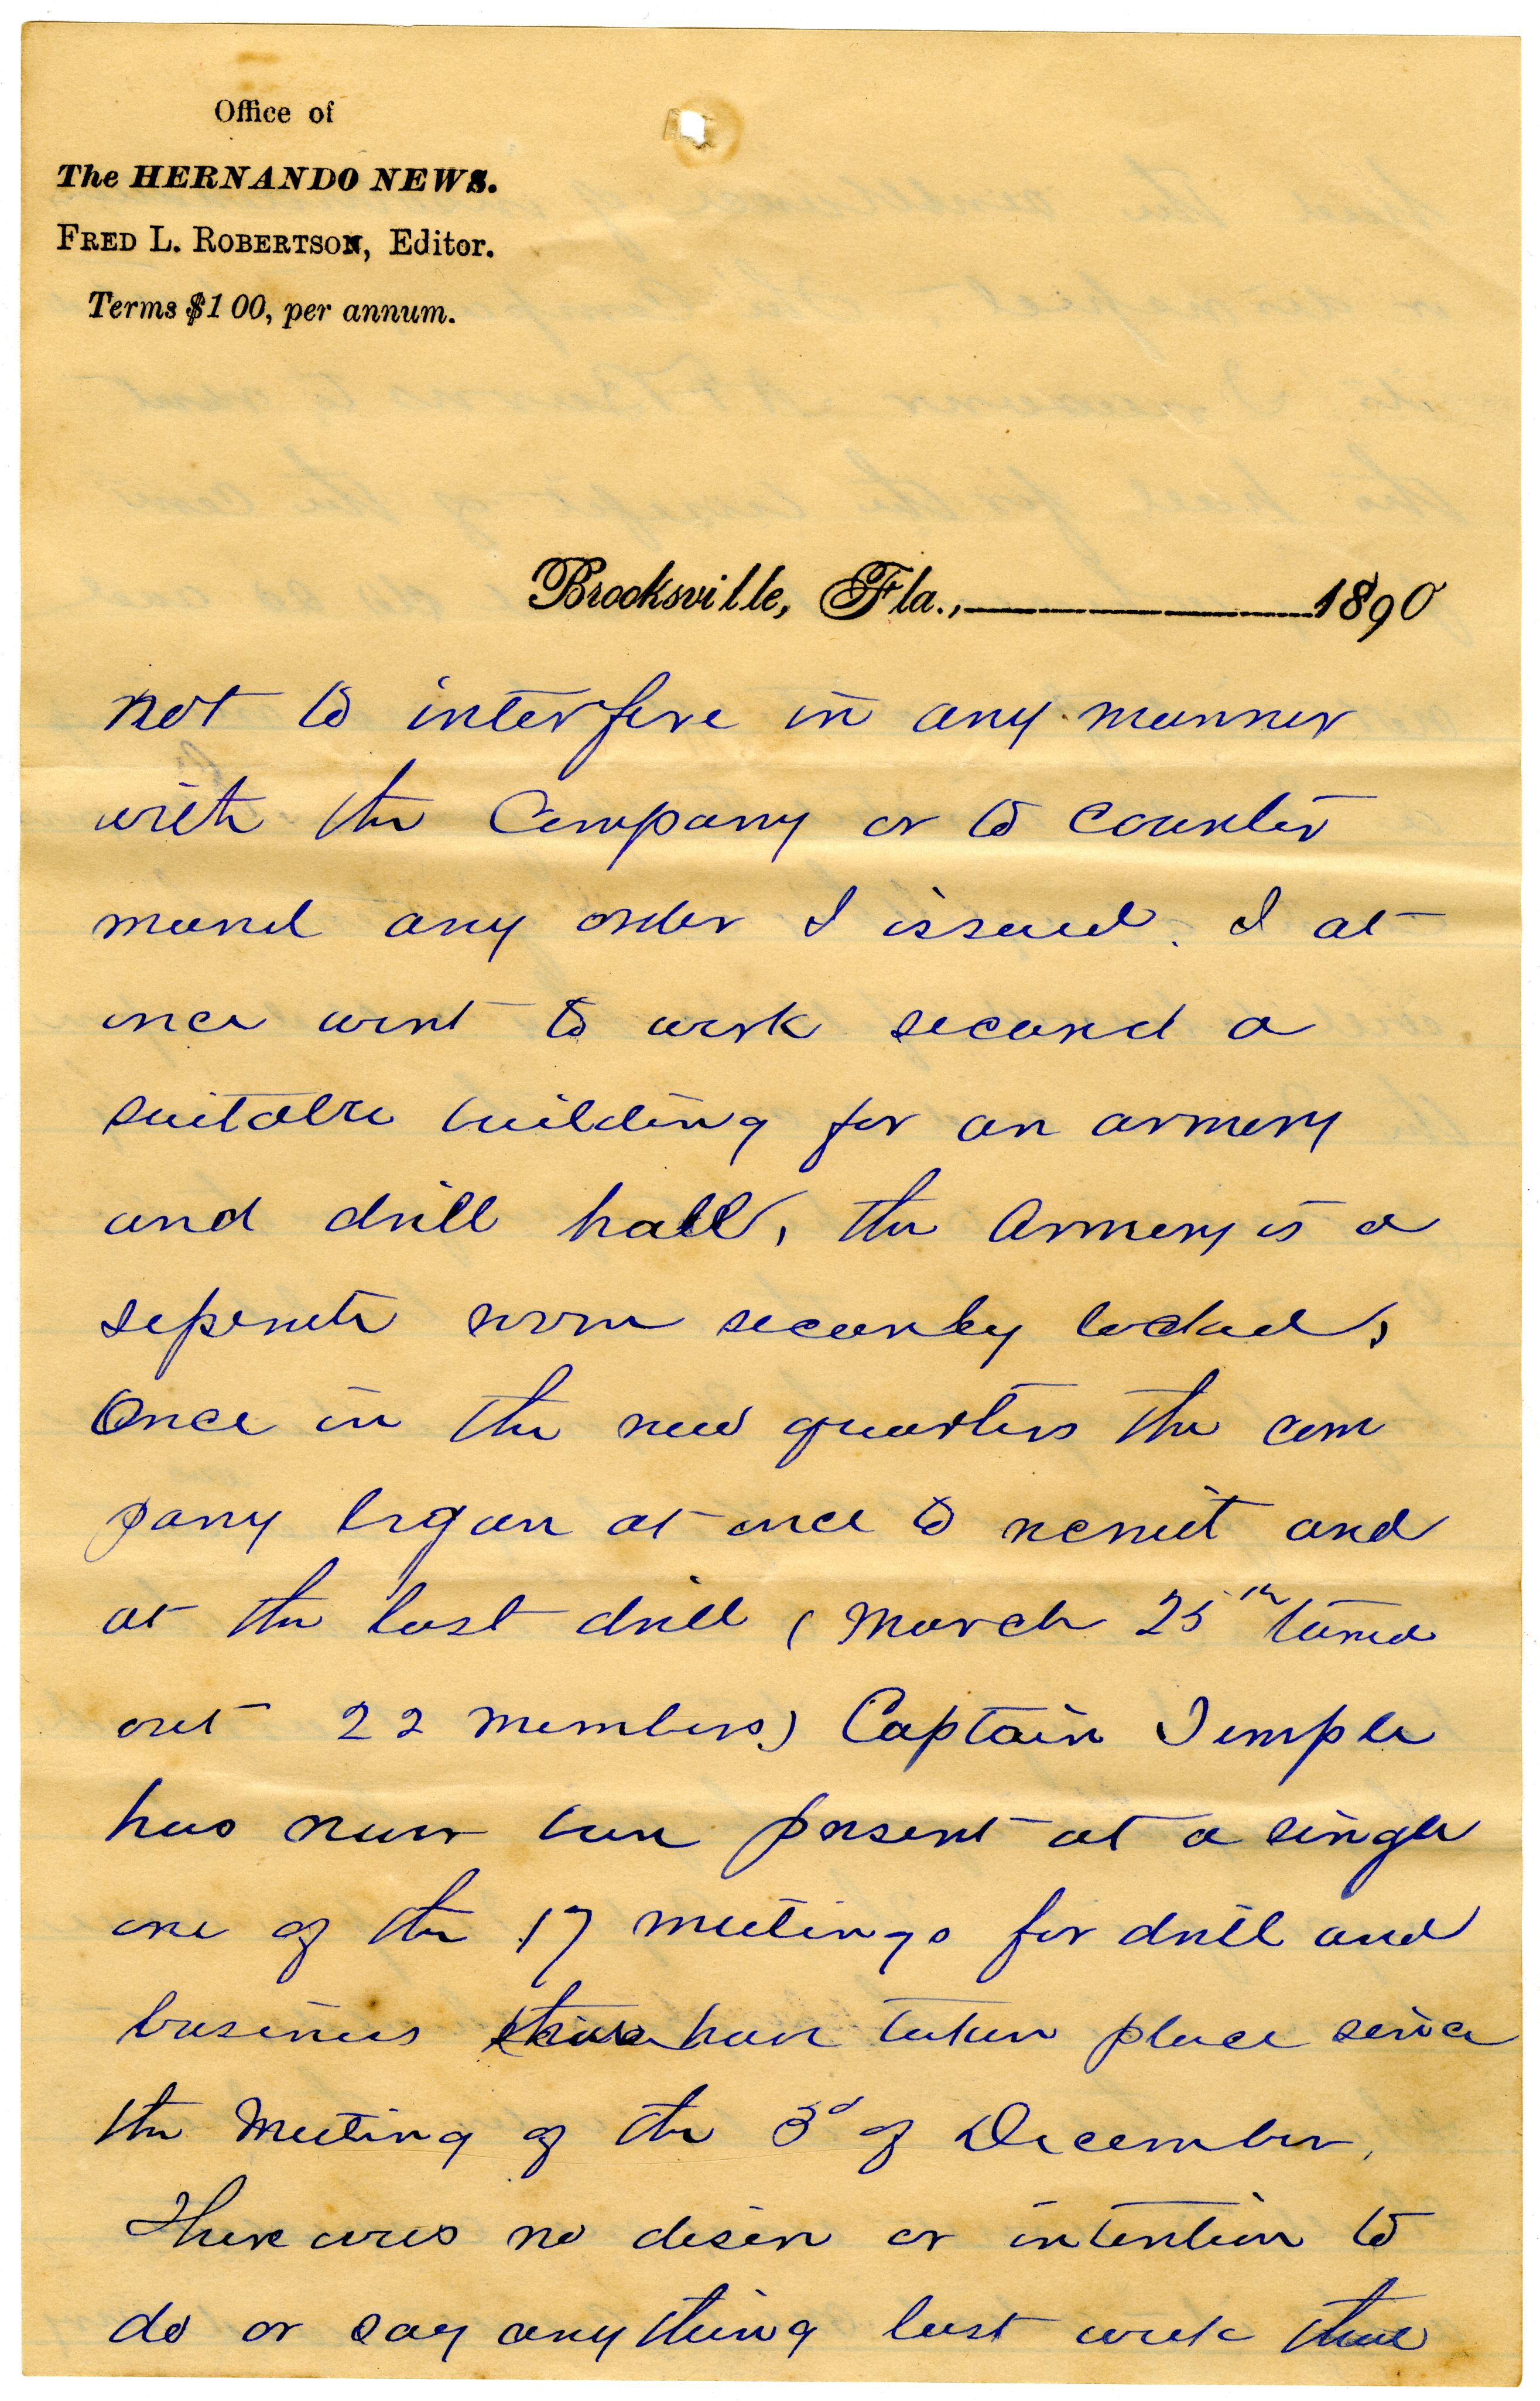 Office of
The HERNANDO NEWS.
FRED L. ROBERTSON, Editor.
Terms $1 00, per annum.
Brooksville, Fla., 1890
not to interfere in any manner
with the Company or to counter
mand any order I issued. I at
once went to work secured a
suitable building for an armory
and drill hall, the Armory is a
seperate room securely locked,
Once in the new quarters the com
pany began at once to recruit and
at the last drill (March 25th turned
out 22 members) Captain Temple
has never been present at a single
one of the 17 meetings for drill and
business that have taken place since
the Meeting of the 3d of December,
There was no desire or intention to
do or say anything last week that